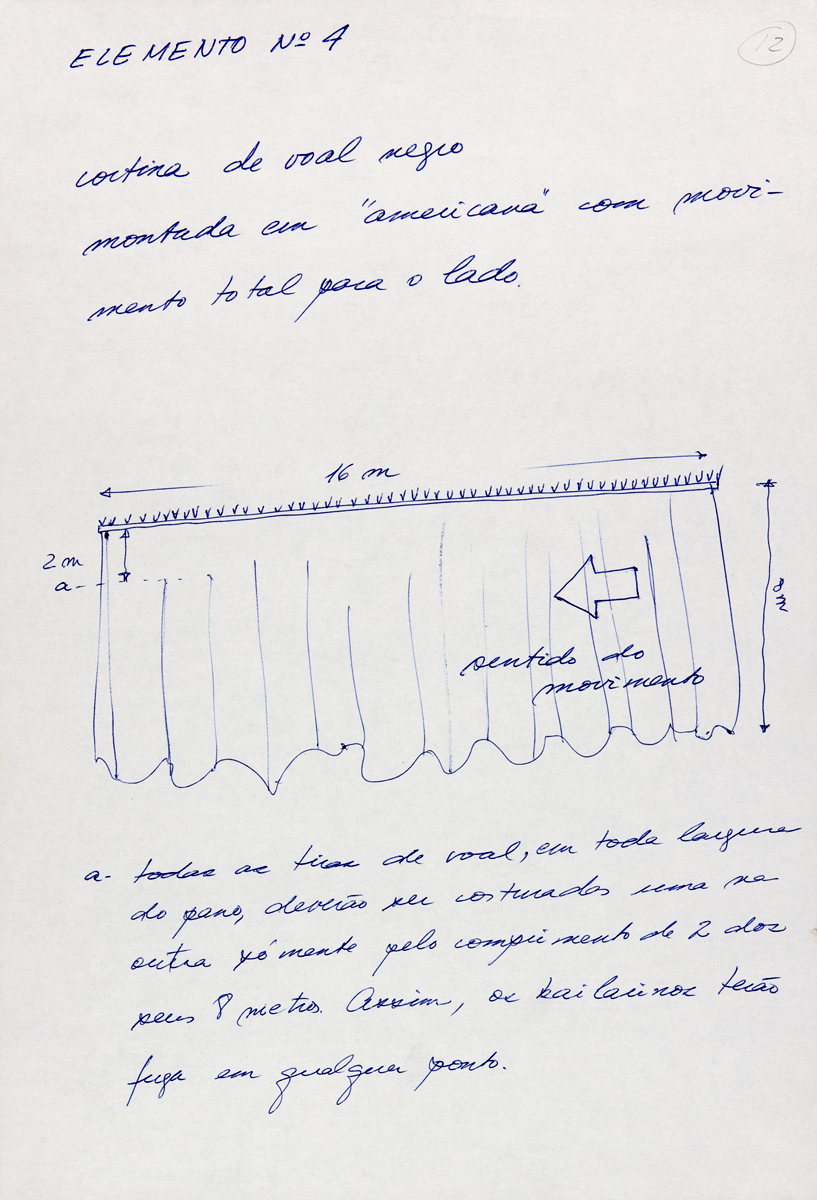 ELEMENTO Nº 4
12
cortina de voal negro
montada em "americana" com movi-
mento total para o lado.
16 m
2 m
a-
8 m
sentido do
movimento
a- todas as tiras de voal, em toda largura
do pano, deverão ser costuradas uma na
outra sómente pelo comprimento de 2 dos
seus 8 metros. Assim, os bailarinos terão
fuga em qualquer ponto.